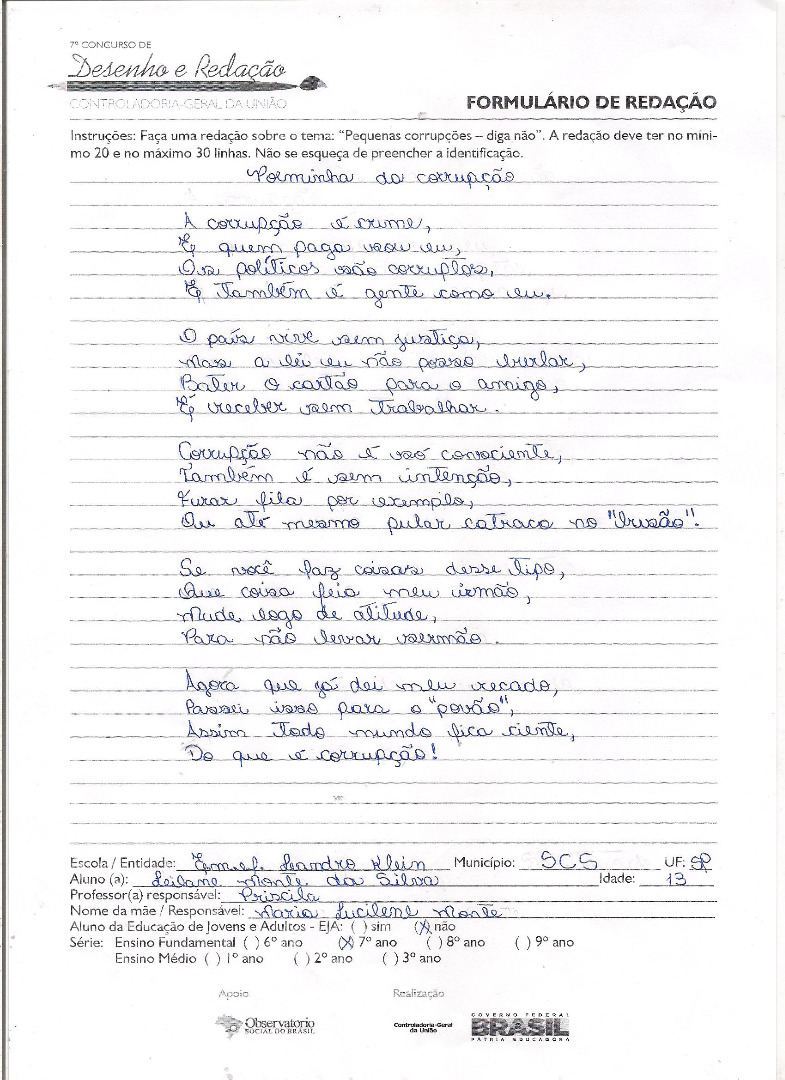 7º CONCURSO DE
Desenho e Redação
CONTROLADORIA-GERAL DA UNIÃO
FORMULÁRIO DE REDAÇÃO
Instruções: Faça uma redação sobre o tema: “Pequenas corrupções – diga não”. A redação deve ter no míni-
mo 20 e no máximo 30 linhas. Não se esqueça de preencher a identificação.
Poeminha da corrupção
A corrupção é crime,
E quem paga sou eu,
Os políticos são corruptos,
E também é gente como eu.
O país vive sem justiça,
Mas a lei eu não posso burlar,
Bater o cartão para o amigo,
E receber sem trabalhar.
Corrupção não é só consciente,
Também é sem intenção,
Furar fila por exemplo,
Ou até mesmo pular catraca no "Busão".
Se você faz coisas desse tipo,
Que coisa feia meu irmão,
Mude logo de atitude,
Para não levar sermão.
Agora que já dei meu recado,
Passei isso para o "povão",
Assim todo mundo fica ciente,
Do que é corrupção!
Escola / Entidade: E.m.e.f. Leandro Klein Município: SCS UF: SP
Aluno (a): Leilane Monte da Silva Idade: 13
Professor(a) responsável: Priscila
Nome da mãe / Responsável: Maria Lucilene Monte
Aluno da Educação de Jovens e Adultos - EJA: ( ) sim (X) não
Série: Ensino Fundamental ( ) 6º ano (X) 7º ano ( ) 8º ano ( ) 9º ano
Ensino Médio ( ) 1º ano ( ) 2º ano ( ) 3º ano
Apoio Realização
Observatório
SOCIAL DO BRASIL
Controladoria-Geral
da União
GOVERNO FEDERAL
BRASIL
PÁTRIA EDUCADORA